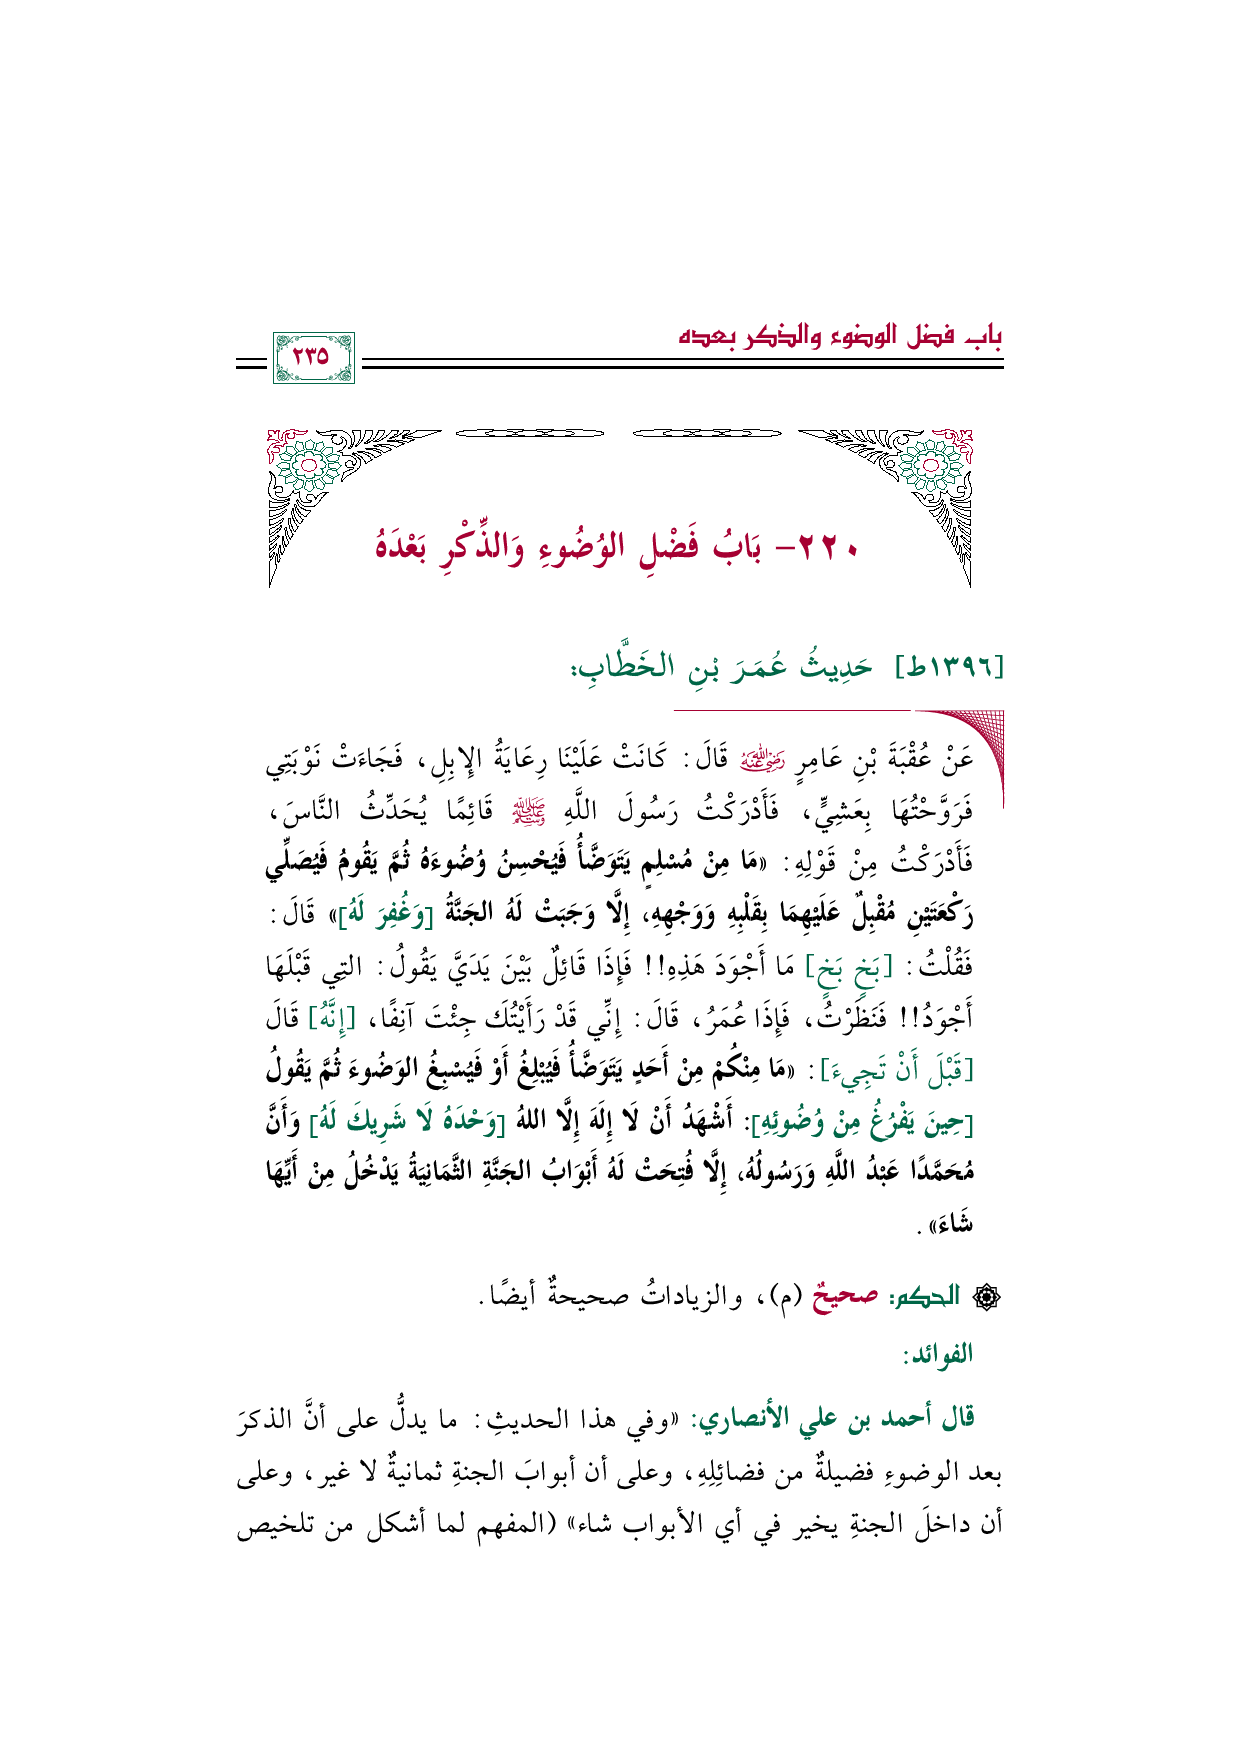 باب فضل الوضوء والذكر بعده
٢٣٥
٢٢٠- بَابُ فَضْلِ الوُضُوءِ وَالذِّكْرِ بَعْدَهُ
[١٣٩٦ط] حَدِيثُ عُمَرَ بْنِ الخَطَّابِ:
عَنْ عُقْبَةَ بْنِ عَامِرٍ رضي الله عنه قَالَ: كَانَتْ عَلَيْنَا رِعَايَةُ الإِبِلِ، فَجَاءَتْ نَوْبَتِي
فَرَوَّحْتُهَا بِعَشِيٍّ، فَأَدْرَكْتُ رَسُولَ اللَّهِ ﷺ قَائِمًا يُحَدِّثُ النَّاسَ،
فَأَدْرَكْتُ مِنْ قَوْلِهِ: «مَا مِنْ مُسْلِمٍ يَتَوَضَّأُ فَيُحْسِنُ وُضُوءَهُ ثُمَّ يَقُومُ فَيُصَلِّي
رَكْعَتَيْنِ مُقْبِلٌ عَلَيْهِمَا بِقَلْبِهِ وَوَجْهِهِ، إِلَّا وَجَبَتْ لَهُ الجَنَّةُ [وَغُفِرَ لَهُ]» قَالَ:
فَقُلْتُ: [بَخٍ بَخٍ] مَا أَجْوَدَ هَذِهِ!! فَإِذَا قَائِلٌ بَيْنَ يَدَيَّ يَقُولُ: التِي قَبْلَهَا
أَجْوَدُ!! فَنَظَرْتُ، فَإِذَا عُمَرُ، قَالَ: إِنِّي قَدْ رَأَيْتُك جِئْتَ آنِفًا، [إِنَّهُ] قَالَ
[قَبْلَ أَنْ تَجِيءَ]: «مَا مِنْكُمْ مِنْ أَحَدٍ يَتَوَضَّأُ فَيُبْلِغُ أَوْ فَيُسْبِغُ الوَضُوءَ ثُمَّ يَقُولُ
[حِينَ يَفْرُغُ مِنْ وُضُوئِهِ]: أَشْهَدُ أَنْ لَا إِلَهَ إِلَّا اللهُ [وَحْدَهُ لَا شَرِيكَ لَهُ] وَأَنَّ
مُحَمَّدًا عَبْدُ اللَّهِ وَرَسُولُهُ، إِلَّا فُتِحَتْ لَهُ أَبْوَابُ الجَنَّةِ الثَّمَانِيَةُ يَدْخُلُ مِنْ أَيِّهَا
شَاءَ».
الحكم: صحيحٌ (م)، والزياداتُ صحيحةٌ أيضًا.
الفوائد:
قال أحمد بن علي الأنصاري: «وفي هذا الحديثِ: ما يدلُّ على أنَّ الذكرَ
بعد الوضوءِ فضيلةٌ من فضائِلِهِ، وعلى أن أبوابَ الجنةِ ثمانيةٌ لا غير، وعلى
أن داخلَ الجنةِ يخير في أي الأبواب شاء» (المفهم لما أشكل من تلخيص